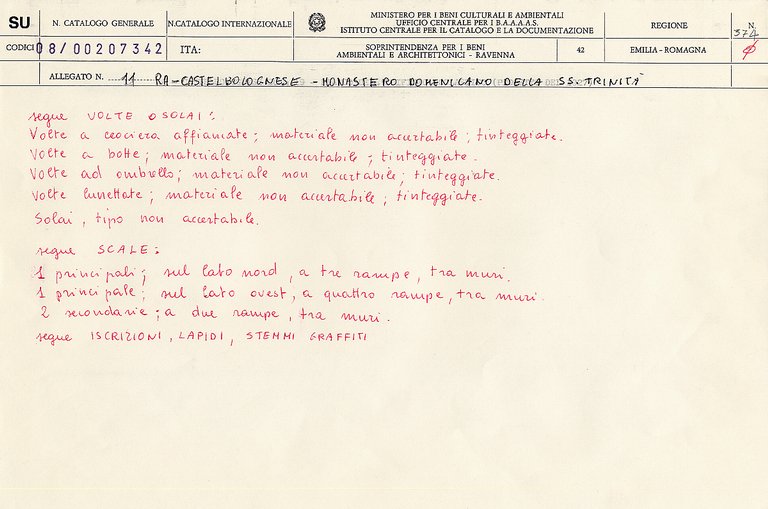 SU
N. CATALOGO GENERALE
N.CATALOGO INTERNAZIONALE
MINISTERO PER I BENI CULTURALI E AMBIENTALI
UFFICIO CENTRALE PER I B.A.A.A.S.
ISTITUTO CENTRALE PER IL CATALOGO E LA DOCUMENTAZIONE
REGIONE
N.
374
CODICI
08/00207342
ITA:
SOPRINTENDENZA PER I BENI
AMBIENTALI E ARCHITETTONICI - RAVENNA
42
EMILIA-ROMAGNA
ALLEGATO N. 11 RA-CASTELBOLOGNESE - MONASTERO DOMENICANO DELLA SS.TRINITÀ
segue VOLTE O SOLAI:
Volte a crociera affiancate; materiale non accertabile; tinteggiate.
Volte a botte; materiale non accertabile; tinteggiate.
Volte ad ombrello; materiale non accertabile; tinteggiate.
Volte lunettate; materiale non accertabile; tinteggiate.
Solai, tipo non accertabile.
segue SCALE:
1 principali; sul lato nord, a tre rampe, tra muri.
1 principale; sul lato ovest, a quattro rampe, tra muri.
2 secondarie; a due rampe, tra muri.
segue ISCRIZIONI, LAPIDI, STEMMI GRAFFITI